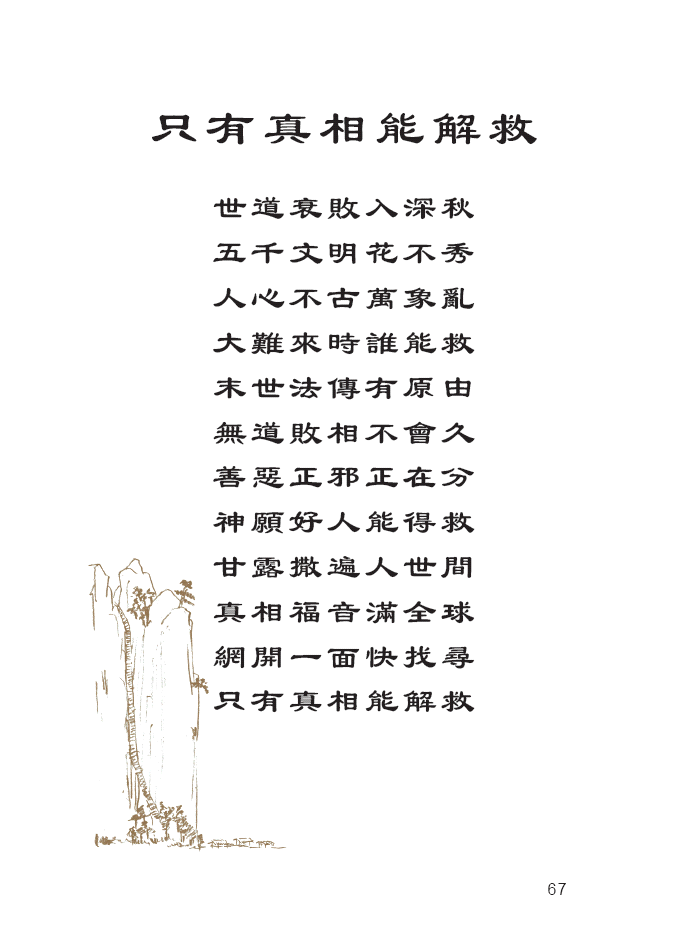 只有真相能解救
世道衰敗入深秋
五千文明花不秀
人心不古萬象亂
大難來時誰能救
末世法傳有原由
無道敗相不會久
善惡正邪正在分
神願好人能得救
甘露撒遍人世間
真相福音滿全球
網開一面快找尋
只有真相能解救
67